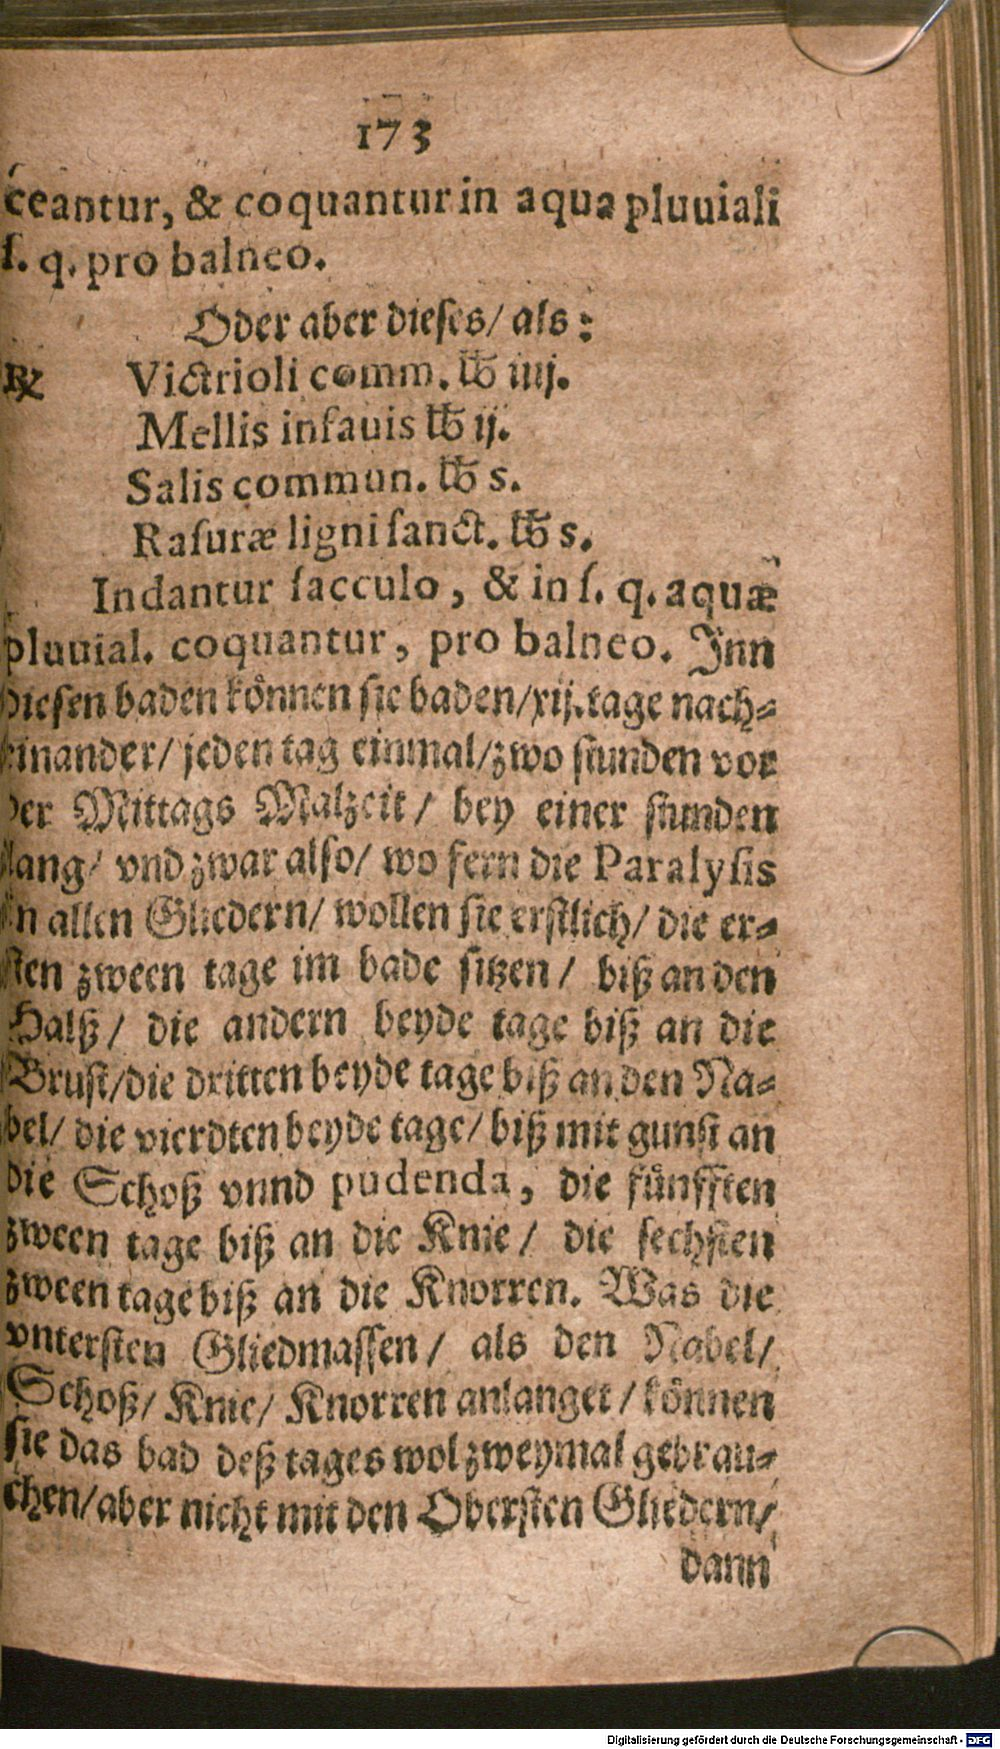 173
ceantur, & coquantur in aqua pluuiali
ſ. q. pro balneo.
Oder aber dieſes/ als:
℞ Victrioli comm. ℔ iiij.
Mellis infauis ℔ ij.
Salis commun. ℔ s.
Raſuræ ligni ſanct. ℔ s.
Indantur ſacculo, & in ſ. q. aquæ
pluuial. coquantur, pro balneo. Inn
dieſen baden können ſie baden/ xij. tage nach-
einander/ jeden tag einmal/ zwo ſtunden vor
der Mittags Malzeit/ bey einer ſtunden
lang/ vnd zwar alſo/ wo fern die Paralyſis
in allen Gliedern/ wollen ſie erſtlich/ die er-
ſten zween tage im bade ſitzen/ biß an den
Halß/ die andern beyde tage biß an die
Bruſt/ die dritten beyde tage biß an den Na-
bel/ die vierdten beyde tage/ biß mit gunſt an
die Schoß vnnd pudenda, die fünfften
zween tage biß an die Knie/ die ſechſten
zween tage biß an die Knorren. Was die
vnterſten Gliedmaſſen/ als den Nabel/
Schoß/ Knie/ Knorren anlanget/ können
ſie das bad deß tages wol zweymal gebrau-
chen/ aber nicht mit den Oberſten Gliedern/
dann
Digitalisierung gefördert durch die Deutsche Forschungsgemeinschaft - DFG